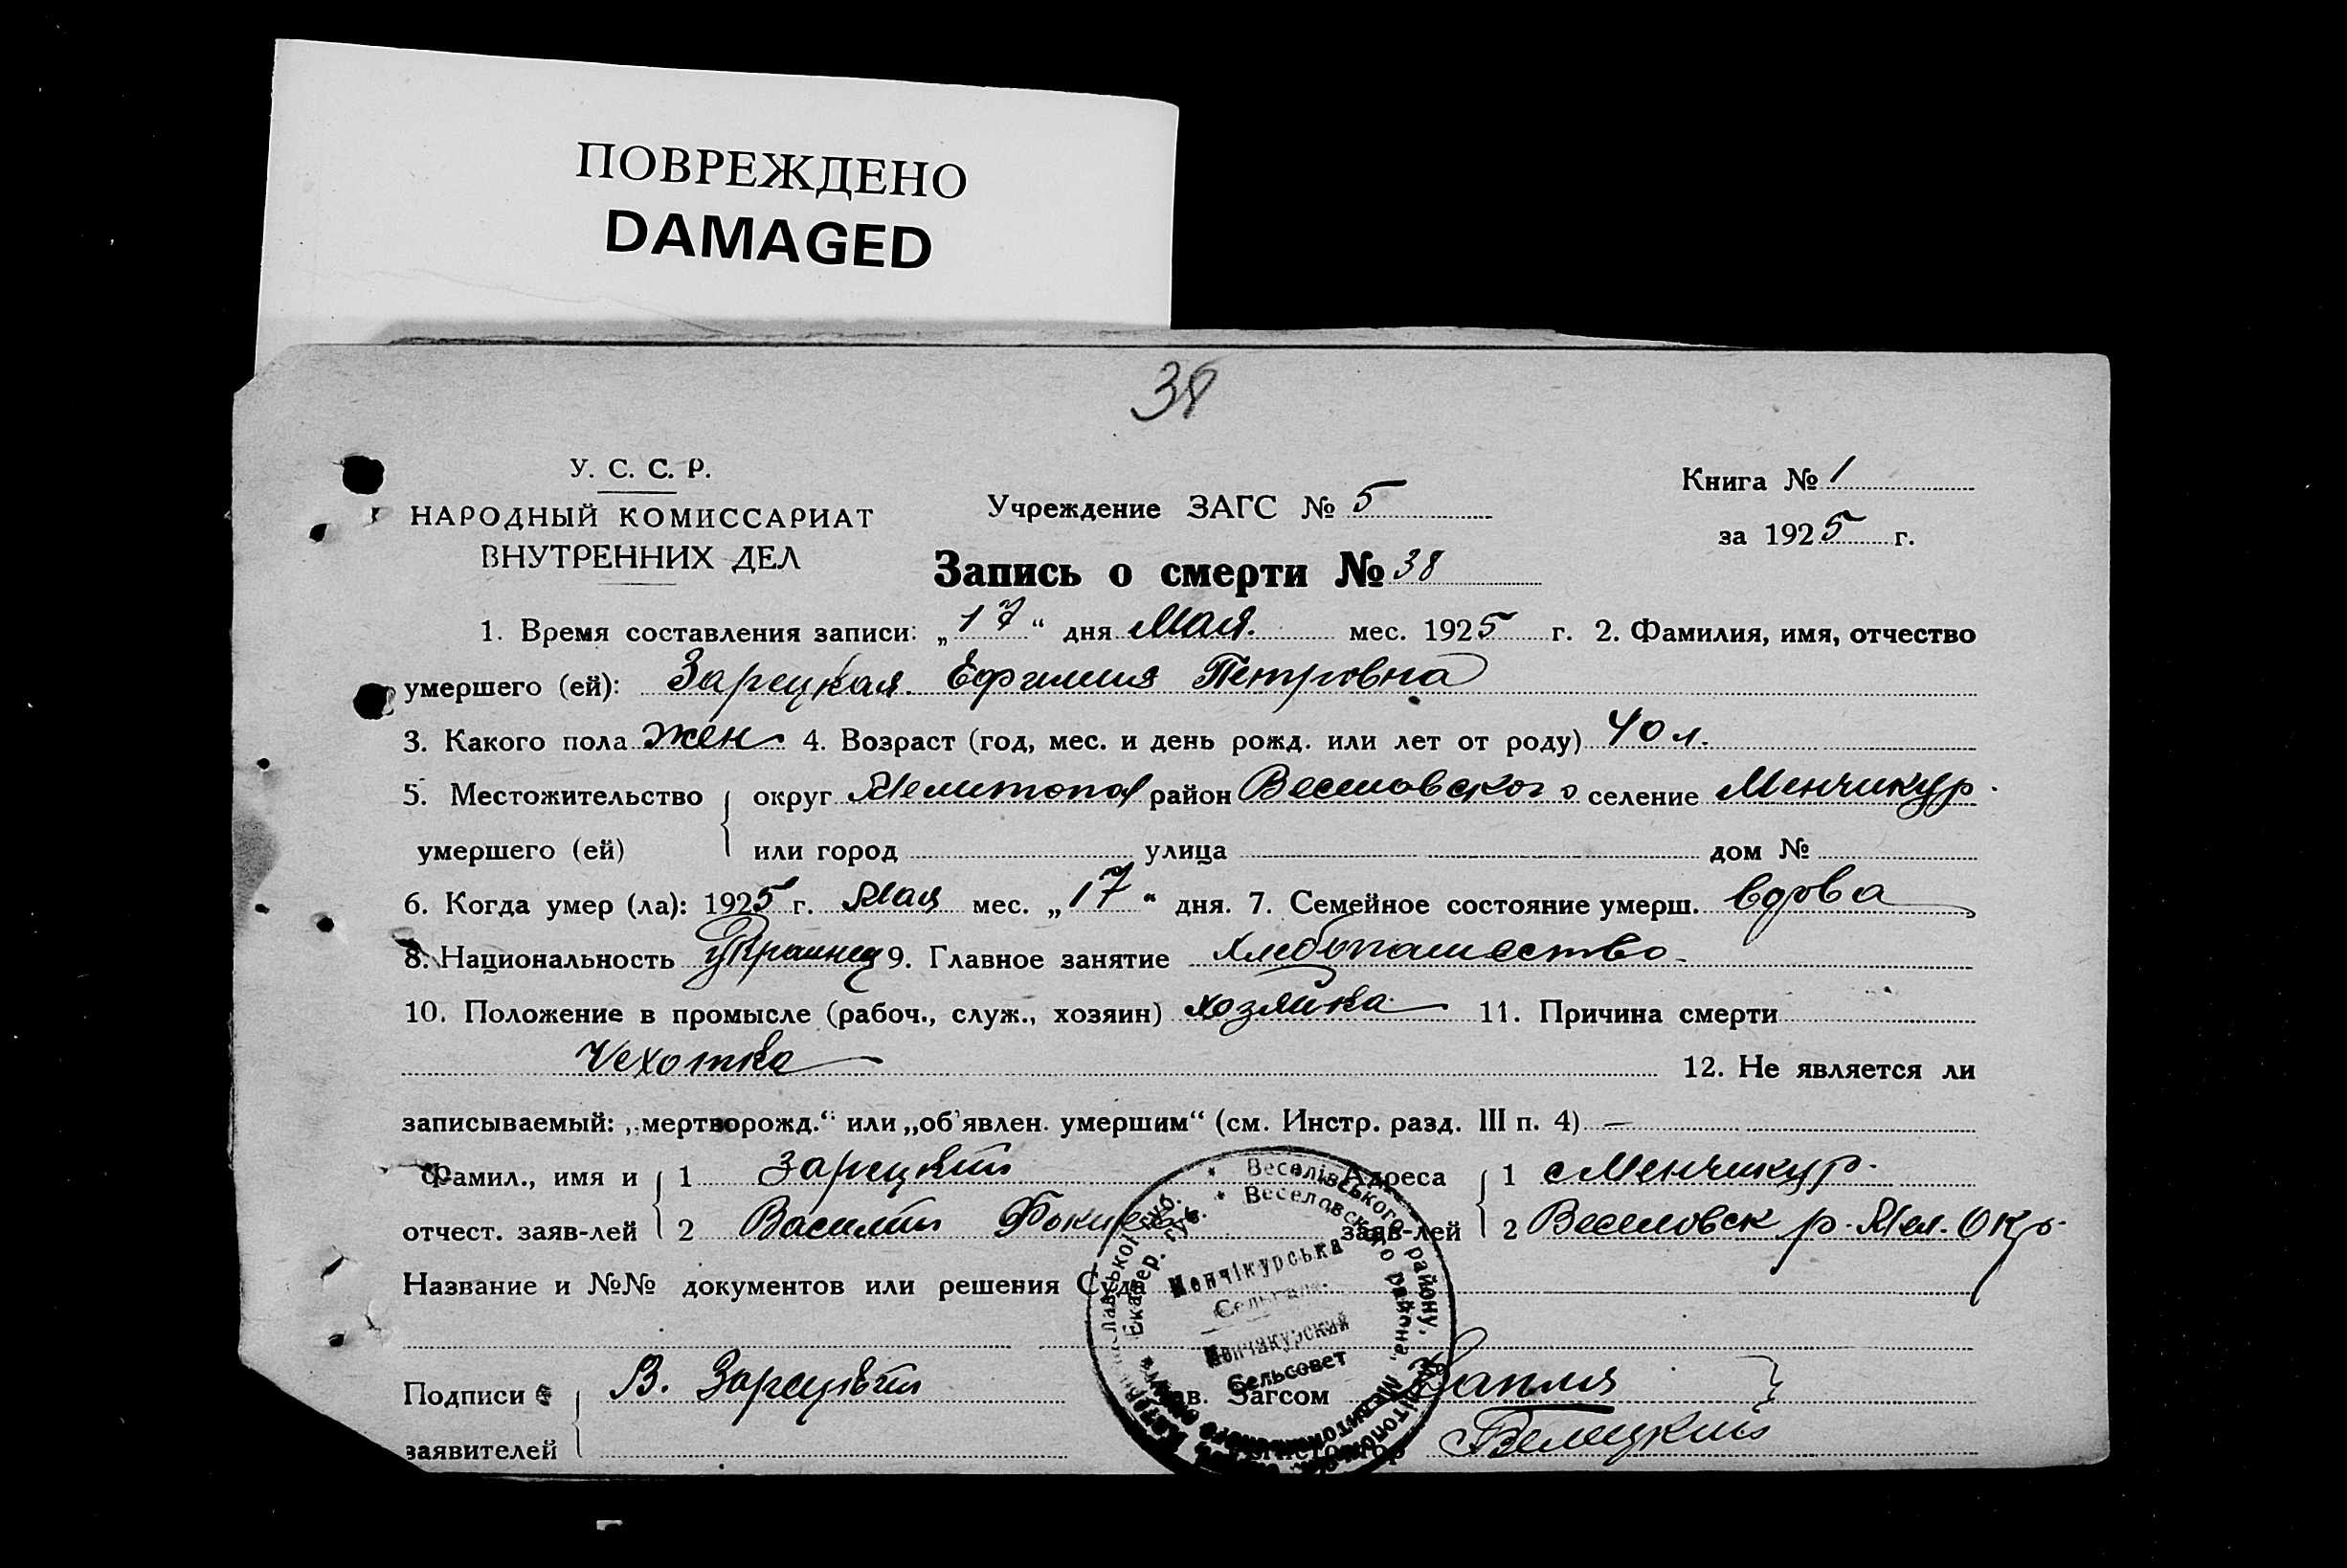 ПОВРЕЖДЕНО
DAMAGED
38
У. С. С. Р.
НАРОДНЫЙ КОМИССАРИАТ
ВНУТРЕННИХ ДЕЛ
Учреждение ЗАГС № 5
Книга № 1
за 1925 г.
Запись о смерти № 38
1. Время составления записи: „17“ дня Мая. мес. 1925 г. 2. Фамилия, имя, отчество
умершего (ей): Зарецкая Ефимия Петровна
3. Какого пола жен 4. Возраст (год, мес. и день рожд. или лет от роду) 40 л.
5. Местожительство округ Мелитопол район Веселовского селение Менчикур.
умершего (ей) или город улица дом №
6. Когда умер (ла): 1925 г. Мая мес. „17“ дня. 7. Семейное состояние умерш. вдова
8. Национальность украинец 9. Главное занятие хлебопашество
10. Положение в промысле (рабоч., служ., хозяин) хозяйка 11. Причина смерти
Чехотка 12. Не является ли
записываемый: „мертворожд.“ или „об'явлен. умершим“ (см. Инстр. разд. III п. 4) —
Фамил., имя и 1 Зарецкий Адреса 1 с Менчикур.
отчест. заяв-лей 2 Василий заяв-лей 2 Веселовск р. Мел. Окр.
Название и №№ документов или решения Суда
Подписи В. Зарецкий Зав. Загсом
заявителей Белецкий
Веселівського району,
Веселовского района,
Екатер. губ.
Менчікурська
Менчикурский
Сельсовет